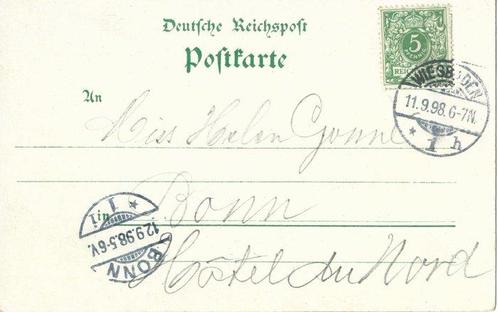 Deutsche Reichspost
Postkarte
5
REIC
WIESBADEN
11.9.98.6-7N.
* 1 h
An
Miss Helen Gonne
in
Bonn
Hôtel du Nord
BONN
12.9.98.5-6V.
* 1 i